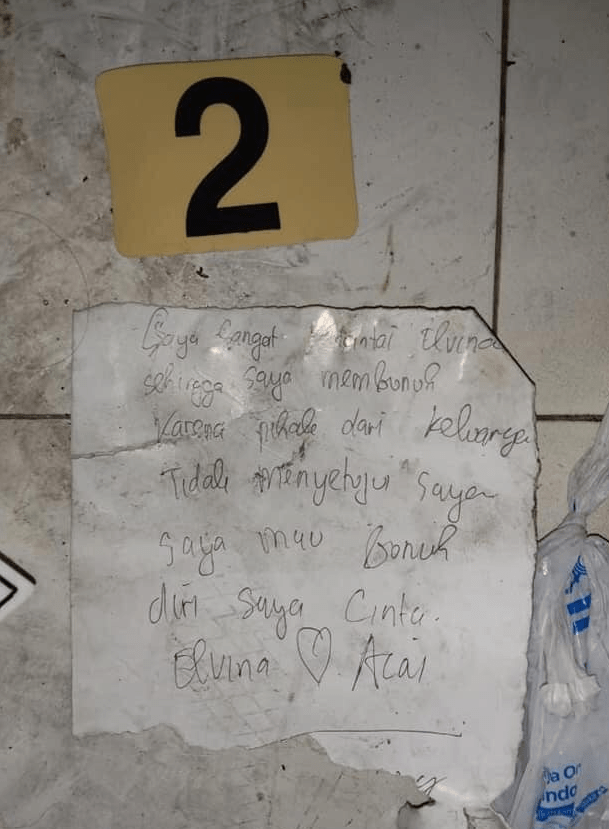 2
Saya sangat mencintai Elvina
sehingga saya membunuh
Karena pihak dari keluarga
Tidak menyetujui saya
saya mau Bonuh
diri saya Cinta.
Elvina ♡ Acai